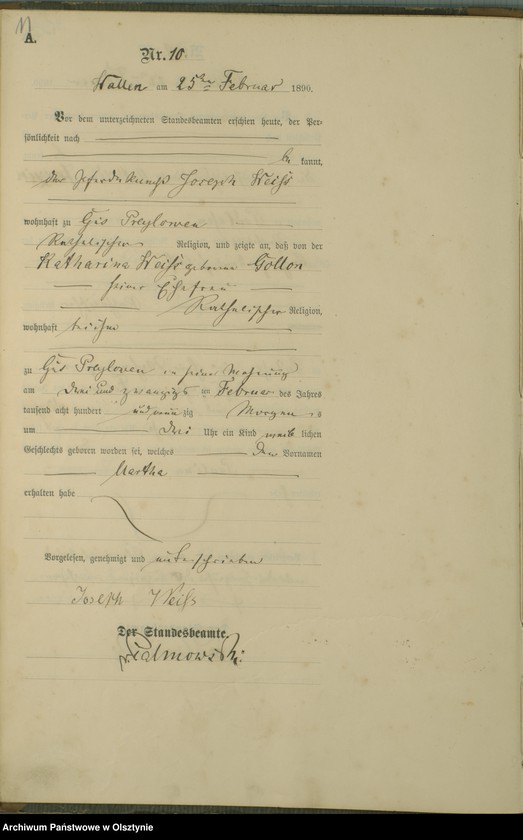 11
A.
Nr. 10.
Wallen am 25ten Februar 1890.
Vor dem unterzeichneten Standesbeamten erschien heute, der Per-
sönlichkeit nach
be kannt,
der Pferdeknecht Joseph Weiß
wohnhaft zu Gut Preylowen
Katholischer Religion, und zeigte an, daß von der
Katharina Weiß geborene Gollon
seiner Ehefrau
Katholischer Religion,
wohnhaft bei ihm
zu Gut Preylowen in seiner Wohnung
am drei und zwanzigsten Februar des Jahres
tausend acht hundert und neunzig Morgens
um drei Uhr ein Kind weib lichen
Geschlechts geboren worden sei, welches den Vornamen
Martha
erhalten habe
Vorgelesen, genehmigt und unterschrieben
Joseph Weiß
Der Standesbeamte.
Palmowski
Archiwum Państwowe w Olsztynie